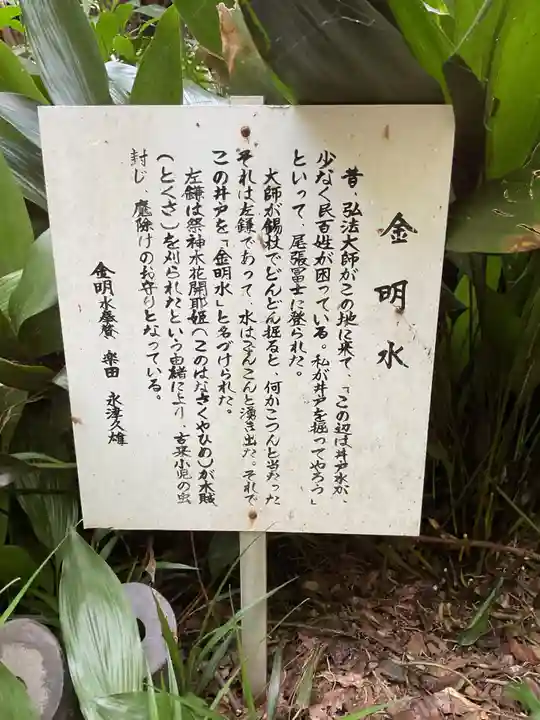 金明水
昔、弘法大師がこの地に来て、「この辺は井戸水が、
少なく民百姓が困っている。私が井戸を掘ってやろう」
といって、尾張冨士に登られた。
大師が錫杖でどんどん掘ると、何かこつんと当たった
それは左鎌であって、水はこんこんと湧き出た。それで
この井戸を「金明水」と名づけられた。
左鎌は祭神木花開耶姫(このはなさくやひめ)が木賊
(とくさ)を刈られたという由緒に上り、古来小児の虫
封じ、魔除けのお守りとなっている。
金明水奉賛 楽田 永津久雄